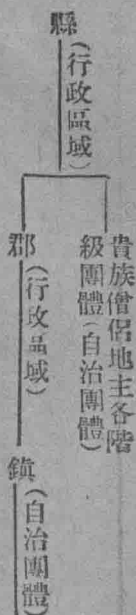 縣(行政區域)
貴族僧侶地主各階
級團體(自治團體)
郡(行政區域)
鎭(自治團體)